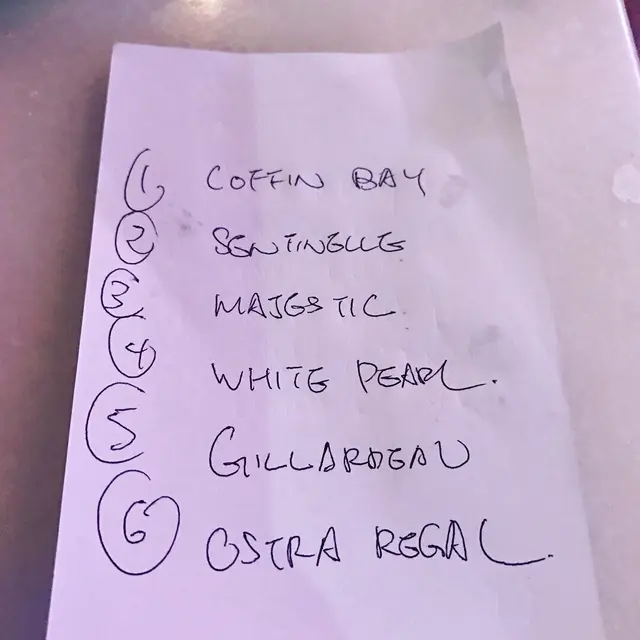 1 COFFIN BAY
2 SENTINELLE
3 MAJESTIC
4 WHITE PEARL.
5 GILLARDEAU
6 OSTRA REGAL.